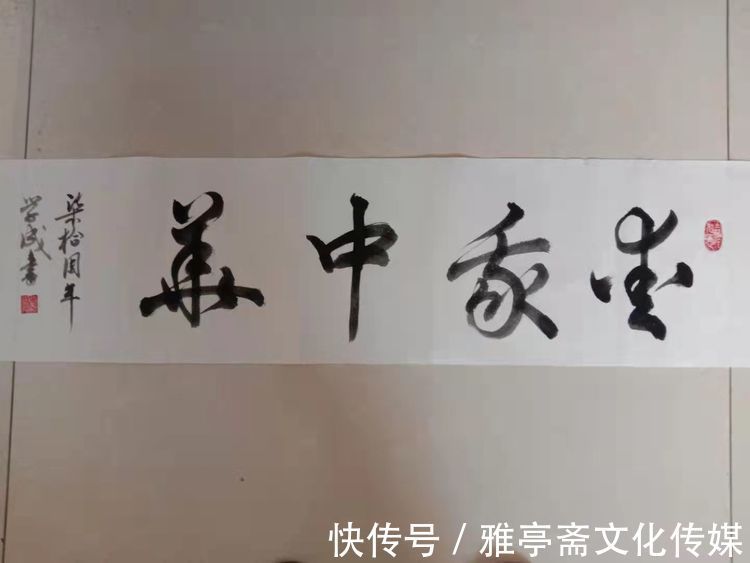 爱我中华
柒拾周年
学成书
快传号 / 雅亭斋文化传媒